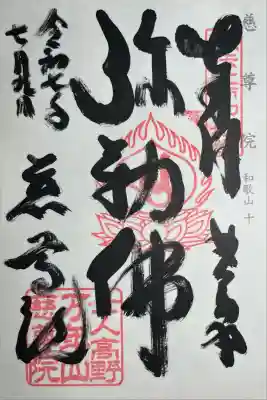 慈尊院 和歌山 十
弥勒佛
令和七年
七月九日
慈尊院
女人高野
万年山
慈尊院